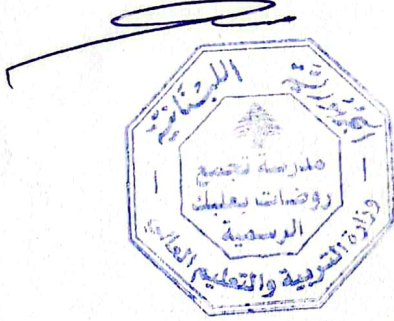 الجمهورية اللبنانية
مدرسة تجمع
روضات بعلبك
الرسمية
وزارة التربية والتعليم العالي